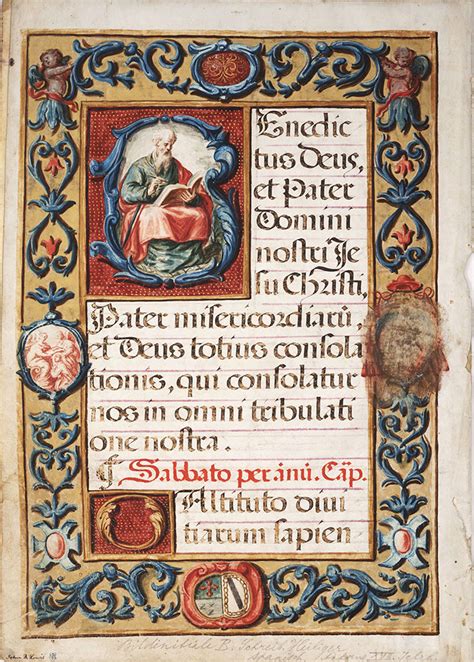 Benedic
tus Deus,
et Pater
Domini
nostri Je
su Christi,
Pater misericordiarū,
et Deus totius consola
tionis, qui consolatur
nos in omni tribulati
one nostra.
Sabbato per ānū. Cap̄.
O Altituto divi
tiarum sapien